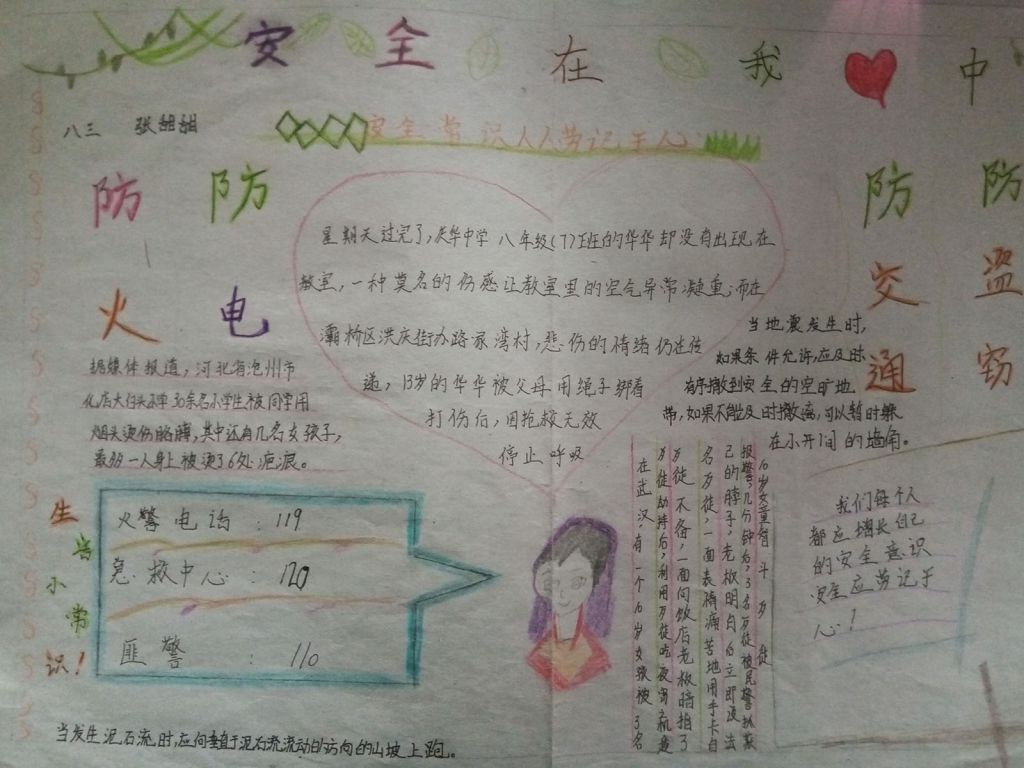 安全在我中
八三 张甜甜
安全常识人人劳记于心
防火
防电
防交通
防盗窃
星期天过完了,庆华中学八年级(7)班的华华却没有出现在
教室,一种莫名的伤感让教室里的空气异常凝重,而在
灞桥区洪庆街办路家湾村,悲伤的情绪仍在传
递,13岁的华华被父母用绳子绑着
打伤后,因抢救无效
停止呼吸
据媒体报道,河北省沧州市
30余名小学生被同学用
烟头烫伤胳膊,其中还有几名女孩子,
最多一人身上被烫了6处疤痕。
当地震发生时,
如果条件允许,应及时
有序撤到安全的空旷地
带,如果不能及时撤离,可以暂时躲
在小开间的墙角。
生
活
小
常
识!
火警电话:119
急救中心:120
匪警:110
16岁女童智斗歹徒
在武汉,有一个16岁女孩被3名
歹徒劫持后,利用歹徒吃夜宵
歹徒不备,一面向饭店老板暗指了
名歹徒,一面表情痛苦地用手卡自
己的脖子,老板明白后立即设法
报警,几分钟后,3名歹徒被民警抓获
我们每个人
都应增长自己
的安全意识
安全应劳记于
心!
当发生泥石流时,应向垂直于泥石流流动的方向的山坡上跑。